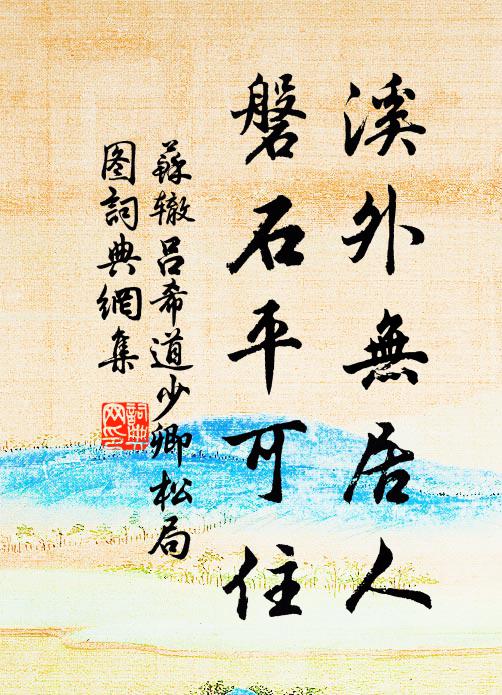 溪外無居人
磐石平可住
蘇辙呂希道少卿松局
图詞典網集
詞典网印